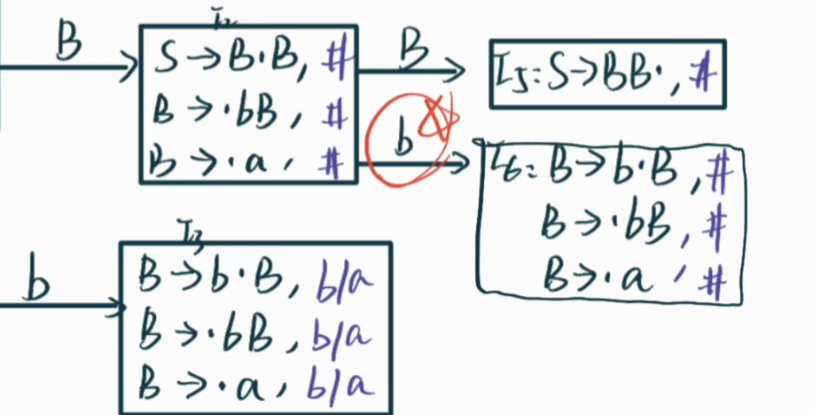 B
I₂
S→B·B, #
B→·bB, #
B→·a, #
B
b
I₅: S→BB·, #
I₆: B→b·B, #
B→·bB, #
B→·a, #
b
I₃
B→b·B, b/a
B→·bB, b/a
B→·a, b/a